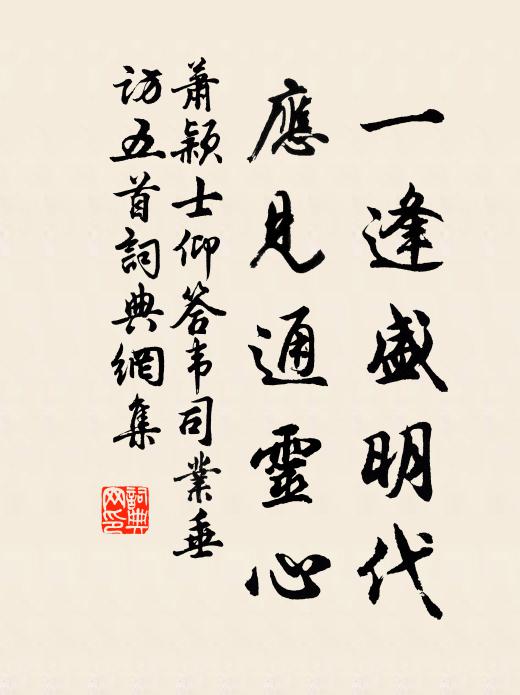 一逢盛明代
應見通靈心
蕭穎士仰答韦司業垂
访五首詞典網集
詞典
网印